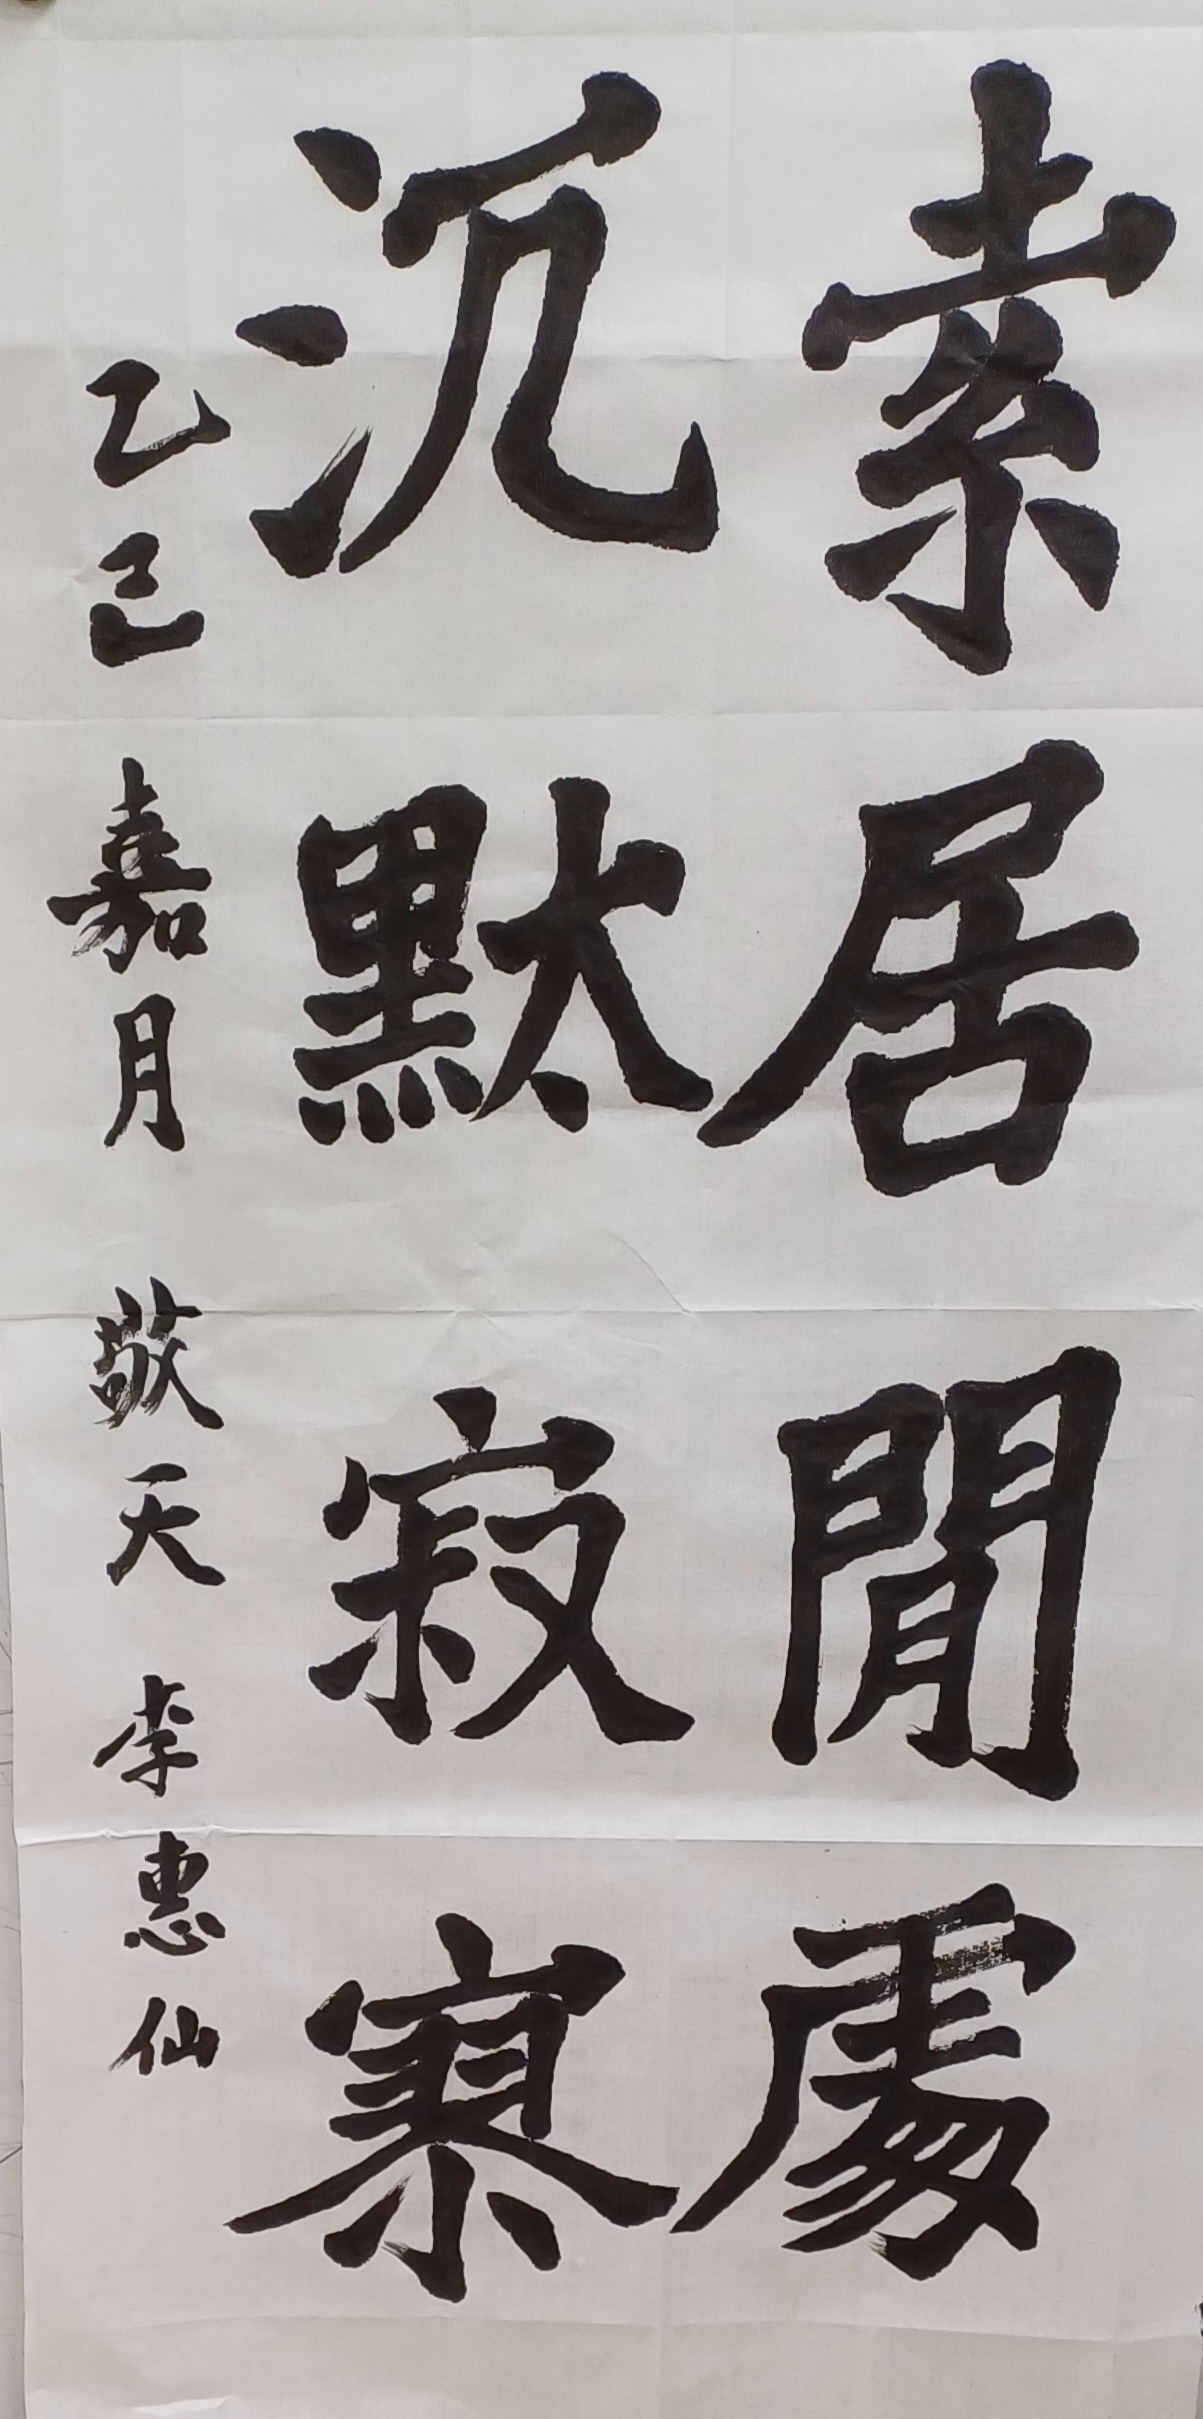 索居閒處
沉默寂寥
乙巳 嘉月 敬天 李惠仙